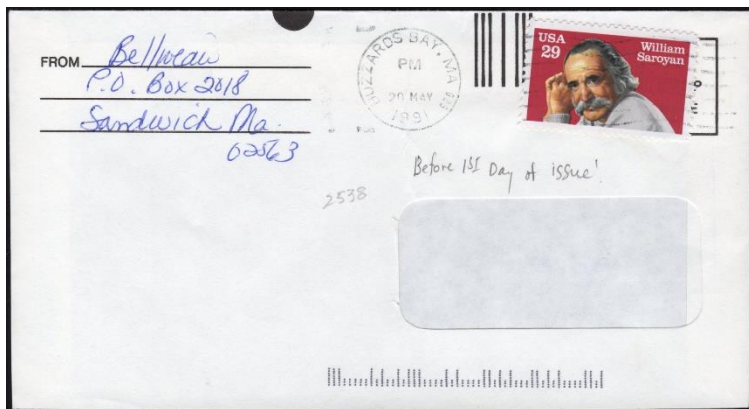 FROM
P.O. Box 2018
Sandwich Ma.
02563
BUZZARDS BAY, MA
PM
MAY
1991
USA
29
William
Saroyan
Before 1st Day of issue!
2538